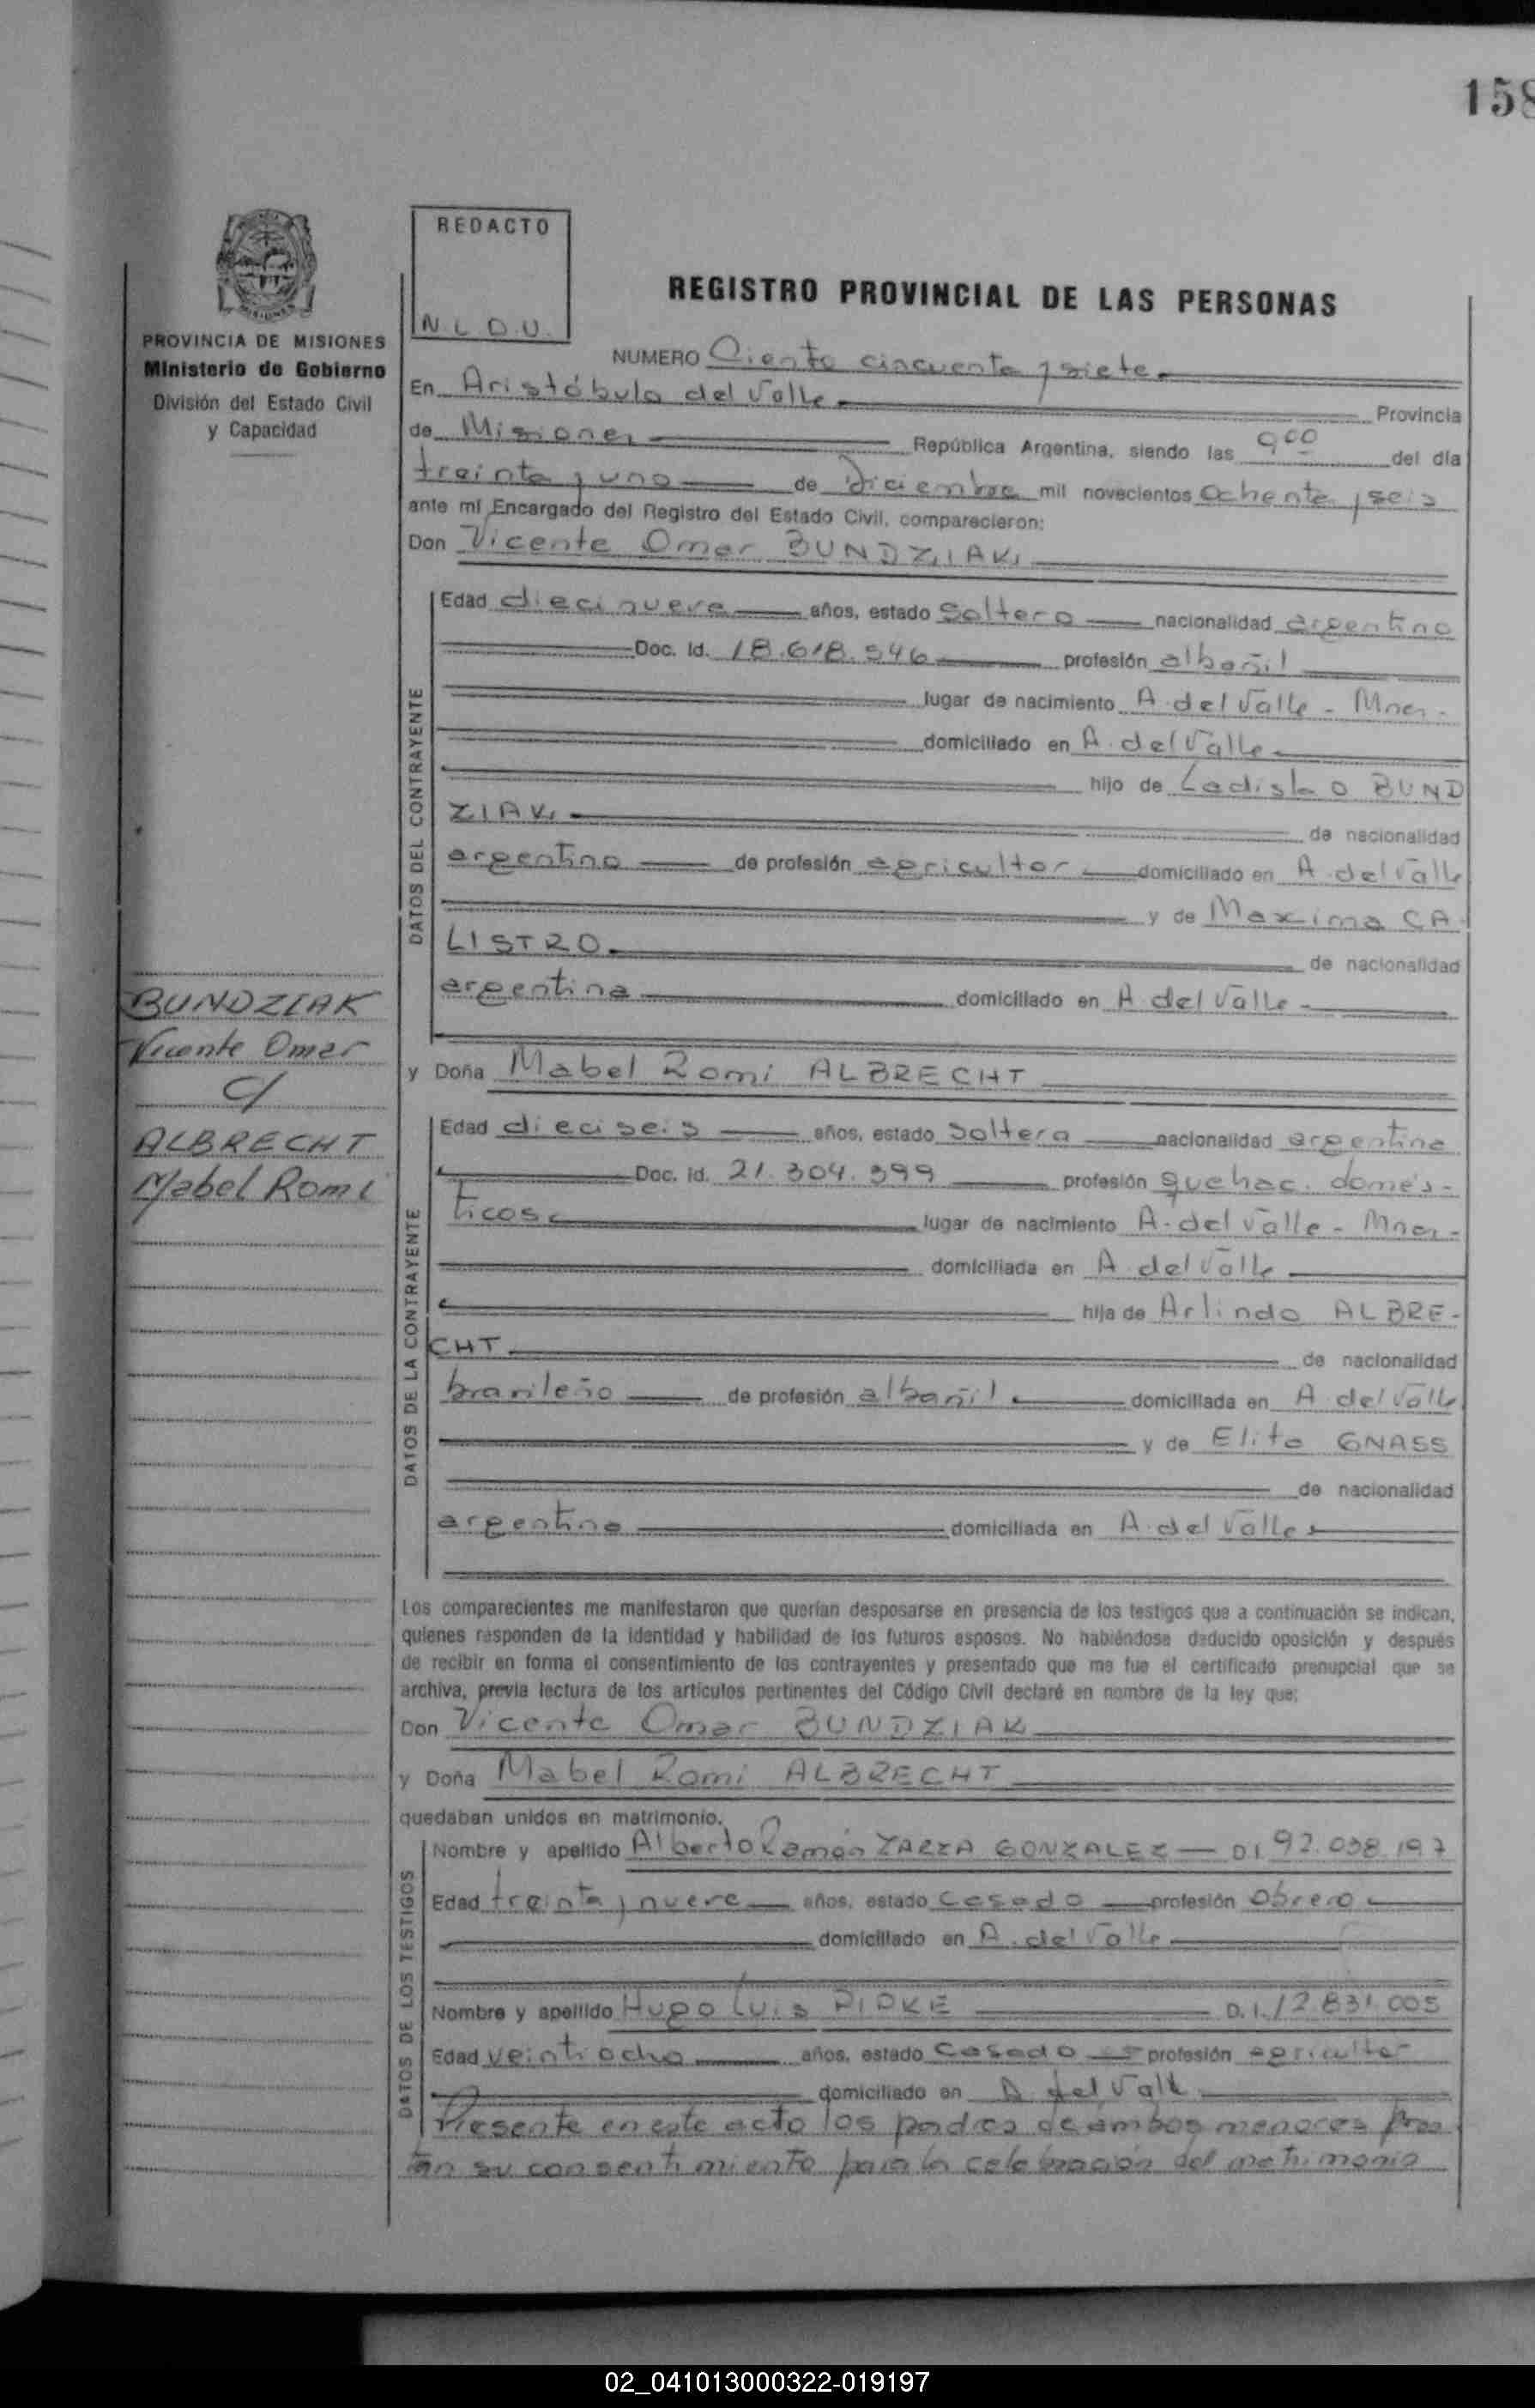 158
REDACTO
N.L.D.U.
REGISTRO PROVINCIAL DE LAS PERSONAS
PROVINCIA DE MISIONES
Ministerio de Gobierno
División del Estado Civil
y Capacidad
NUMERO Ciento cincuenta y siete
En Aristóbulo del Valle Provincia
de Misiones República Argentina, siendo las 9 00 del día
treinta y uno de Diciembre mil novecientos ochenta y seis
ante mí Encargado del Registro del Estado Civil, comparecieron:
Don Vicente Omar BUNDZIAK
Edad diecinueve años, estado Soltero nacionalidad argentino
Doc. Id. 18.618.546 profesión albañil
lugar de nacimiento A. del Valle - Mnes -
domiciliado en A. del Valle
hijo de Ladislao BUND
ZIAK de nacionalidad
argentino de profesión agricultor domiciliado en A. del Valle
y de Maxima CA
LISTRO de nacionalidad
argentina domiciliado en A. del Valle
y Doña Mabel Romi ALBRECHT
Edad dieciseis años, estado Soltera nacionalidad argentina
Doc. Id. 21.304.399 profesión quehac. domés-
ticos lugar de nacimiento A. del Valle - Mnes -
domiciliada en A. del Valle
hija de Arlindo ALBRE-
CHT de nacionalidad
brasileño de profesión albañil domiciliada en A. del Valle
y de Elita GNASS
de nacionalidad
argentina domiciliada en A. del Valle
DATOS DEL CONTRAYENTE
DATOS DE LA CONTRAYENTE
BUNDZIAK
Vicente Omar
c/
ALBRECHT
Mabel Romi
Los comparecientes me manifestaron que querían desposarse en presencia de los testigos que a continuación se indican,
quienes responden de la identidad y habilidad de los futuros esposos. No habiéndose deducido oposición y después
de recibir en forma el consentimiento de los contrayentes y presentado que me fue el certificado prenupcial que se
archiva, previa lectura de los artículos pertinentes del Código Civil declaré en nombre de la ley que:
Don Vicente Omar BUNDZIAK
y Doña Mabel Romi ALBRECHT
quedaban unidos en matrimonio.
DATOS DE LOS TESTIGOS
Nombre y apellido Alberto Ramón ZARZA GONZALEZ D.I. 92.038.197
Edad treinta y nueve años, estado Casado profesión Obrero
domiciliado en A. del Valle
Nombre y apellido Hugo Luis PIPKE D.I. 12.831.005
Edad veintiocho años, estado Casado profesión agricultor
domiciliado en A. del Valle
Presente en este acto los padres de ambos menores pres
tan su consentimiento para la celebración del matrimonio
02_041013000322-019197